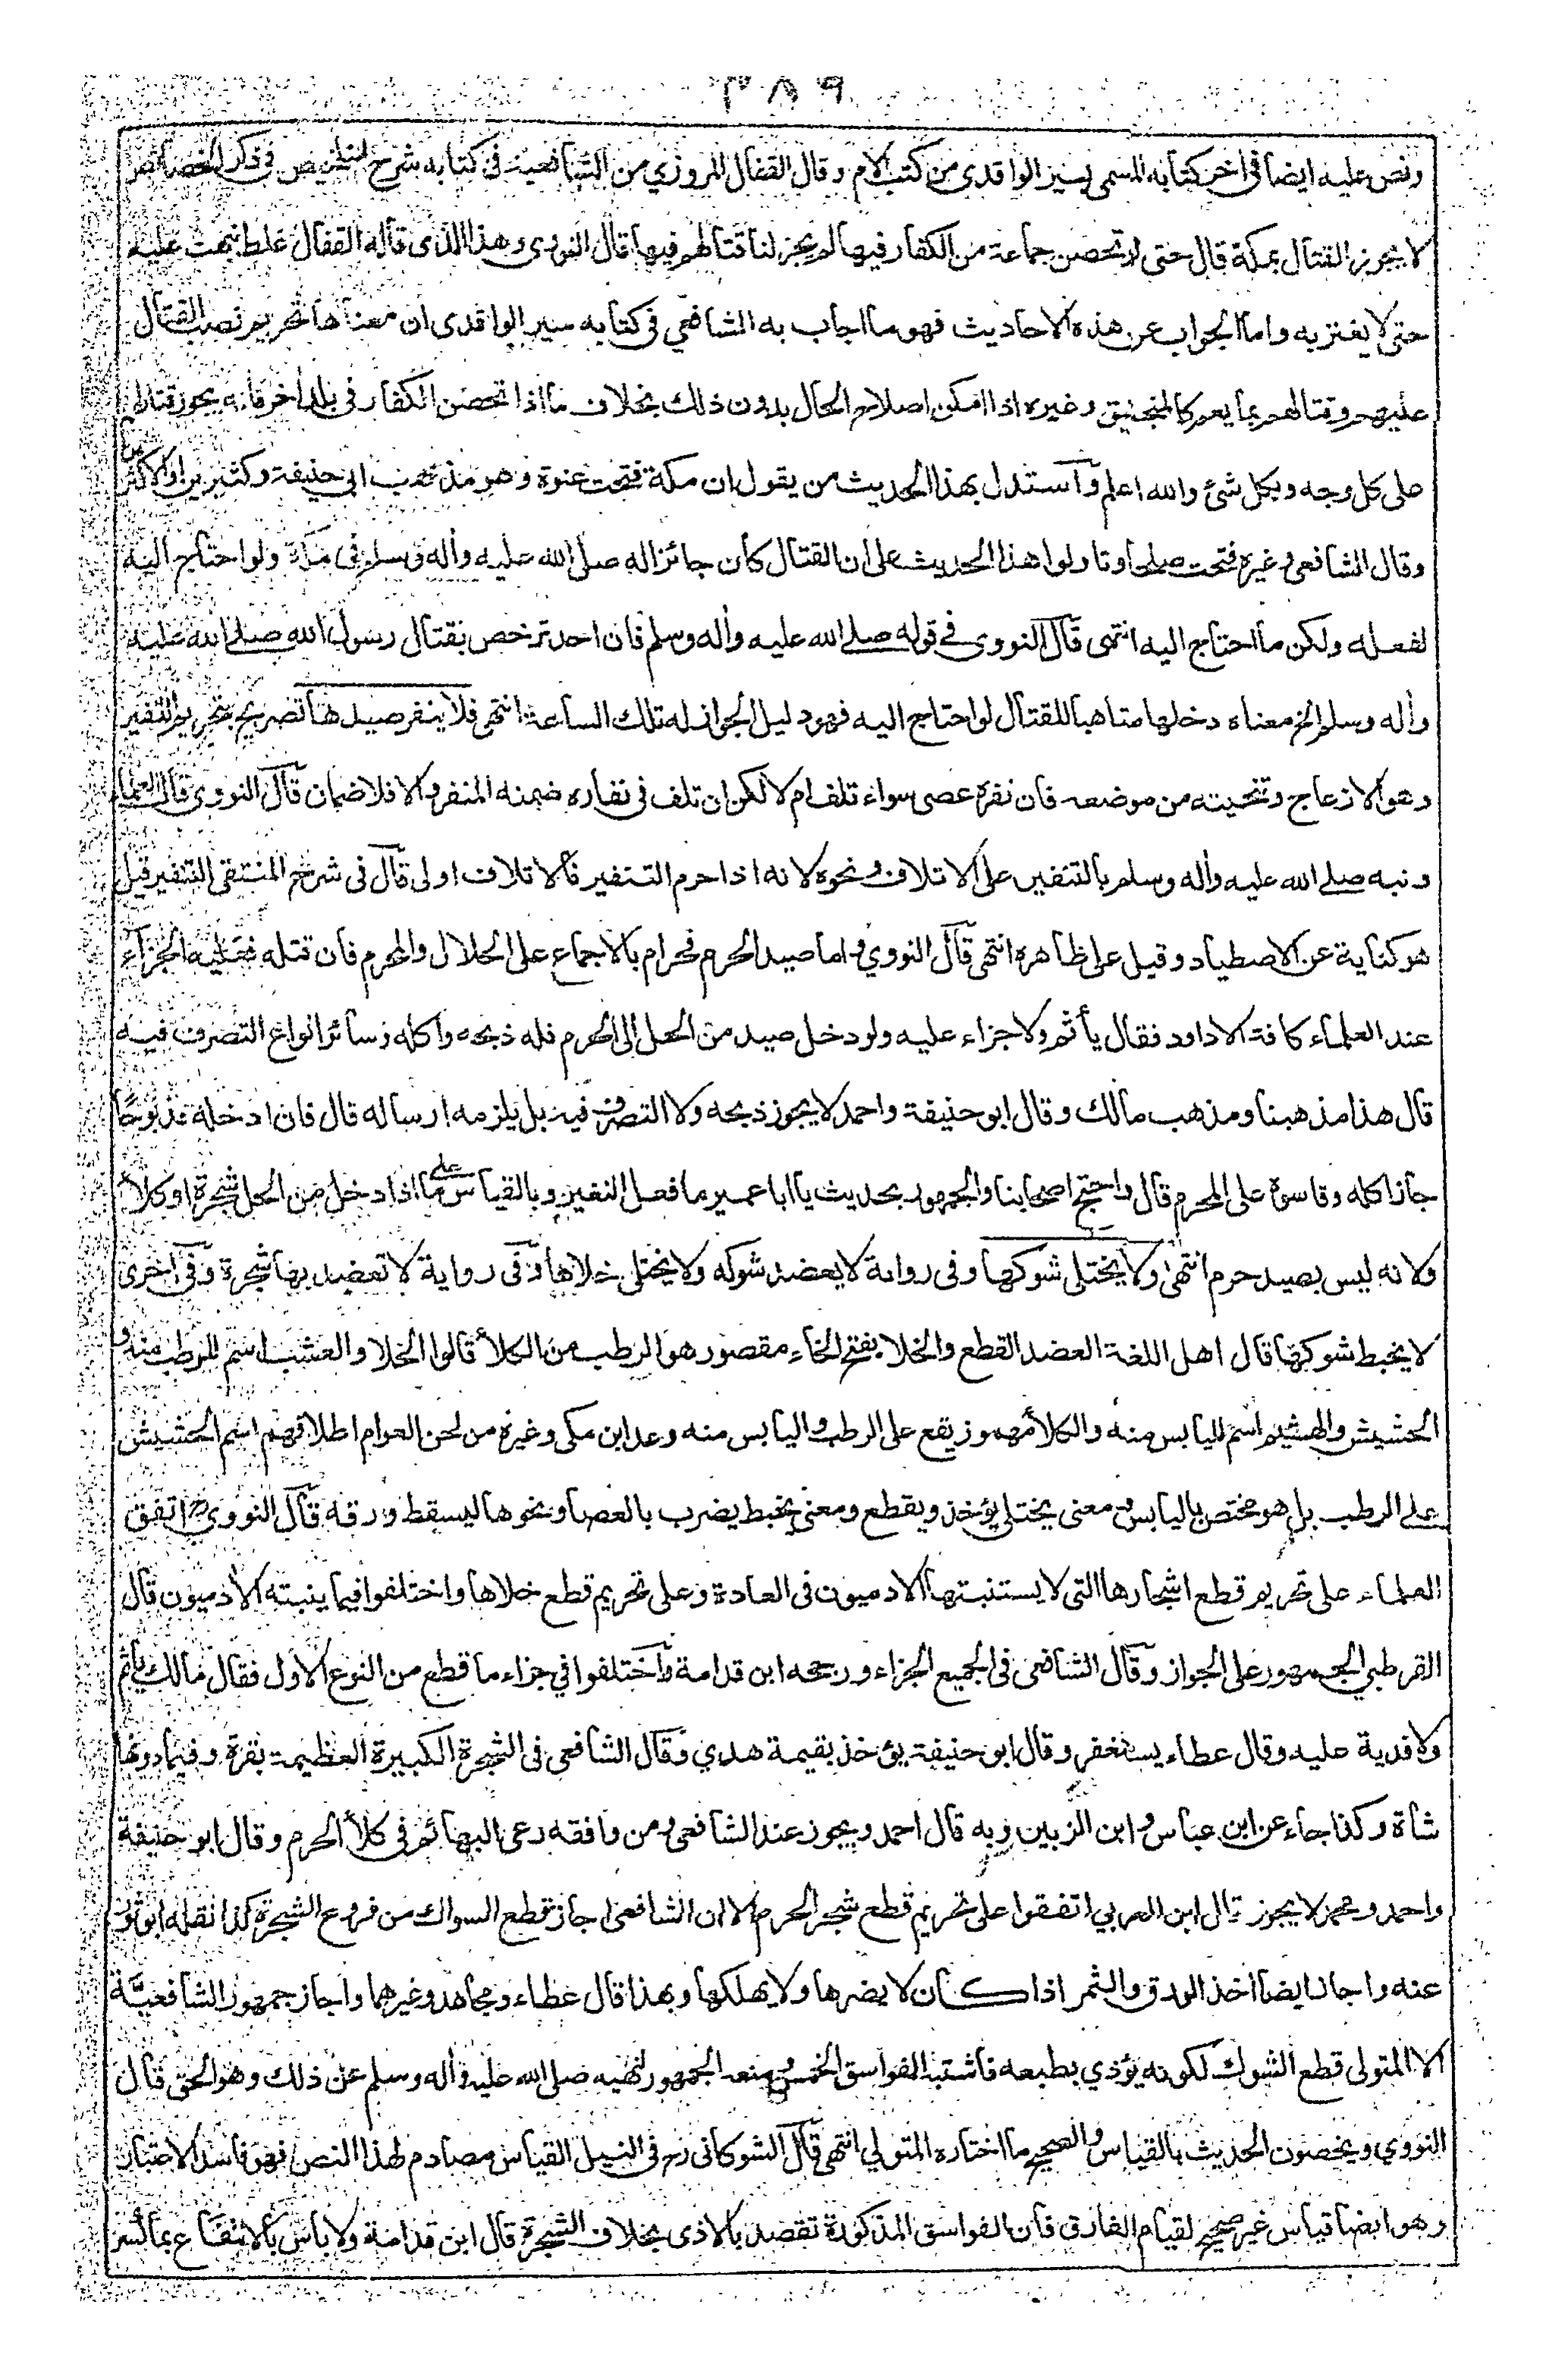 ٣٨٩
ونص عليه ايضا فى اخر كتابه المسمى بسير الواقدى من كتب الام وقال القفال المروزي من الشافعية فى كتابه شرح التلخيص فى ذكر الخصائص
لا يجوز القتال بمكة قال حتى لو تحصن جماعة من الكفار فيها لم يجز لنا قتالهم فيها قال النووى وهذا الذى قاله القفال غلط نبهت عليه
حتى لا يغتر به واما الجواب عن هذه الاحاديث فهو ما اجاب به الشافعي فى كتابه سير الواقدى ان معناها تحريم نصب القتال
عليهم وقتالهم بما يعم كالمنجنيق وغيره اذا امكن اصلاح الحال بدون ذلك بخلاف ما اذا تحصن الكفار فى بلد اخر فانه يجوز قتالهم
على كل وجه وبكل شئ والله اعلم وآستدل بهذا الحديث من يقول ان مكة فتحت عنوة وهو مذهب ابى حنيفة وكثيرين او الاكثرين
وقال الشافعى وغيره فتحت صلحا وتاولوا هذا الحديث على ان القتال كان جائزا له صلى الله عليه وأله وسلم فى مكة ولو احتاج اليه
لفعله ولكن ما احتاج اليه انتهى قآل النووى فى قوله صلے الله عليه وأله وسلم فان احد ترخص بقتال رسول الله صلے الله عليه
وأله وسلم الخ معناه دخلها متاهبا للقتال لو احتاج اليه فهو دليل الجواز له تلك الساعة انتهى فلا ينفر صيدها تصريح بتحريم التنفير
وهو الازعاج وتنحيته من موضعه فان نفره عصى سواء تلف ام لا لكن ان تلف فى نفاره ضمنه المنفر والا فلا ضمان قآل النووى قال العلماء
ونبه صلے الله عليه وأله وسلم بالتنفير على الاتلاف ونحوه لانه اذا حرم التنفير فالاتلاف اولى قآل فى شرح المنتقى التنفير قيل
هو كناية عن الاصطياد وقيل على ظاهره انتهى قآل النووي واما صيد الحرم فحرام بالاجماع على الحلال والمحرم فان قتله فعليه الجزاء
عند العلماء كافة الا داود فقال يأثم ولا جزاء عليه ولو دخل صيد من الحل الى الحرم فله ذبحه واكله وسائر انواع التصرف فيه
قال هذا مذهبنا ومذهب مالك وقال ابو حنيفة واحمد لا يجوز ذبحه ولا التصرف فيه بل يلزمه ارساله قال فان ادخله مذبوحًا
جاز اكله وقاسوه على المحرم قال واحتج اصحابنا والجمهور بحديث يا ابا عمير ما فعل النغير وبالقياس على ما اذا دخل من الحل شجرة او كلأ
ولانه ليس بصيد حرم انتهى ولا يختلى شوكها وفى رواية لا يعضد شوكه ولا يختلى خلاها وفى رواية لا تعضد بها شجرة وفى اخرى
لا يخبط شوكها قال اهل اللغة العضد القطع والخلا بفتح الخاء مقصور هو الرطب من الكلأ قالوا الخلا والعشب اسم للرطب منه و
الحشيش والهشيم اسم لليابس منه والكلأ مهموز يقع على الرطب واليابس منه وعد ابن مكى وغيره من لحن العوام اطلاقهم اسم الحشيش
على الرطب بل هو مختص باليابس ومعنى يختلى يؤخذ ويقطع ومعنى يخبط يضرب بالعصا ونحوها ليسقط ورقه قآل النووى رح اتفق
العلماء على تحريم قطع اشجارها التى لا يستنبتها الادميون فى العادة وعلى تحريم قطع خلاها واختلفوا فيما ينبته الأدميون قال
القرطبي الجمهور على الجواز وقآل الشافعى فى الجميع الجزاء ورجحه ابن قدامة وآختلفوا في جزاء ما قطع من النوع الاول فقال مالك يأثم
ولا فدية عليه وقال عطاء يستغفر وقال ابو حنيفة يؤخذ بقيمة هدي وقآل الشافعى فى الشجرة الكبيرة العظيمة بقرة وفيما دونها
شاة وكذا جاء عن ابن عباس وابن الزبير وبه قال احمد ويجوز عند الشافعى ومن وافقه رعى البهائم فى كلأ الحرم وقال ابو حنيفة
واحمد ومحمد لا يجوز قال ابن العربي اتفقوا على تحريم قطع شجر الحرم الا ان الشافعى اجاز قطع السواك من فروع الشجرة كذا نقله ابو ثور
عنه واجاز ايضا اخذ الورق والثمر اذا كان لا يضرها ولا يهلكها وبهذا قال عطاء ومجاهد وغيرهما واجاز جمهور الشافعيَّة
الا المتولى قطع الشوك لكونه يؤذي بطبعه فاشتبه الفواسق الخمس ومنعه الجمهور لنهيه صلى الله عليه وأله وسلم عن ذلك وهو الحق قال
النووي ويخصون الحديث بالقياس والصحيح ما اختاره المتولي انتهى قآل الشوكانى رح فى النيل القياس مصادم لهذا النص فهو فاسد الاعتبار
وهو ايضا قياس غير صحيح لقيام الفارق فان الفواسق المذكورة تقصد بالاذى بخلاف الشجرة قال ابن قدامة ولا باس بالانتفاع بما انكسر